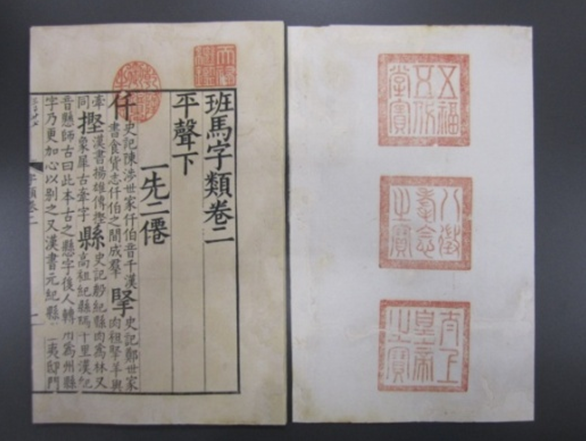 五福五代堂寶
八徵耄念之寶
太上皇帝之寶
天祿繼鑑
乾隆御覽之寶
班馬字類卷二
平聲下
一先二僊
仟史記陳涉世家仟伯音千漢書食貨志仟伯之間成羣掔史記鄭世家肉袒掔羊與
牽同摼漢書揚雄傳摼象犀古牽字縣史記殷紀縣肉爲林又高祖紀縣隔千里漢紀
音懸師古曰此本古之懸字後人轉用爲州縣
字乃更加心以別之又漢書元紀縣夷邸門
字類卷二